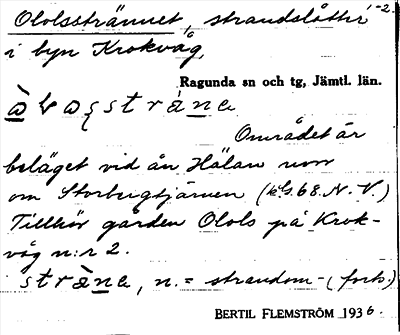 Ololsstrännet, strandslåttr 1-2.
i byn Krokvåg,
Ragunda sn och tg, Jämtl. län.
Området är
beläget vid ån Hälan norr
om Storbergtjärnen (kbl. 68. N.-V.)
Tillhör gården Olols på Krok-
våg n:r 2.
n. = strandom- (forts.)
BERTIL FLEMSTRÖM 1936.